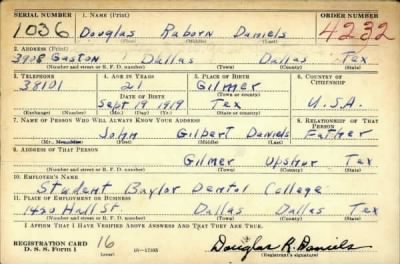 SERIAL NUMBER 1. NAME (Print) ORDER NUMBER
1036 Douglas Raborn Daniels 4232
(First) (Middle) (Last)
2. ADDRESS (Print)
3908 Gaston Dallas Dallas Tex
(Number and street or R. F. D. number) (Town) (County) (State)
3. TELEPHONE 4. AGE IN YEARS 5. PLACE OF BIRTH 6. COUNTRY OF CITIZENSHIP
38101 21 Gilmer
DATE OF BIRTH (Town or county)
Sept 19 1919 Tex U.S.A.
(Exchange) (Number) (Mo.) (Day) (Yr.) (State or country)
7. NAME OF PERSON WHO WILL ALWAYS KNOW YOUR ADDRESS 8. RELATIONSHIP OF THAT PERSON
John Gilbert Daniels Father
(First) (Middle) (Last)
9. ADDRESS OF THAT PERSON
Gilmer Upshur Tex
(Number and street or R. F. D. number) (Town) (County) (State)
10. EMPLOYER'S NAME
Student Baylor Dental College
11. PLACE OF EMPLOYMENT OR BUSINESS
1420 Hall St. Dallas Dallas Tex
(Number and street or R. F. D. number) (Town) (County) (State)
I AFFIRM THAT I HAVE VERIFIED ABOVE ANSWERS AND THAT THEY ARE TRUE.
REGISTRATION CARD 16 Douglas R. Daniels
D. S. S. Form 1 (over) (Registrant's signature)